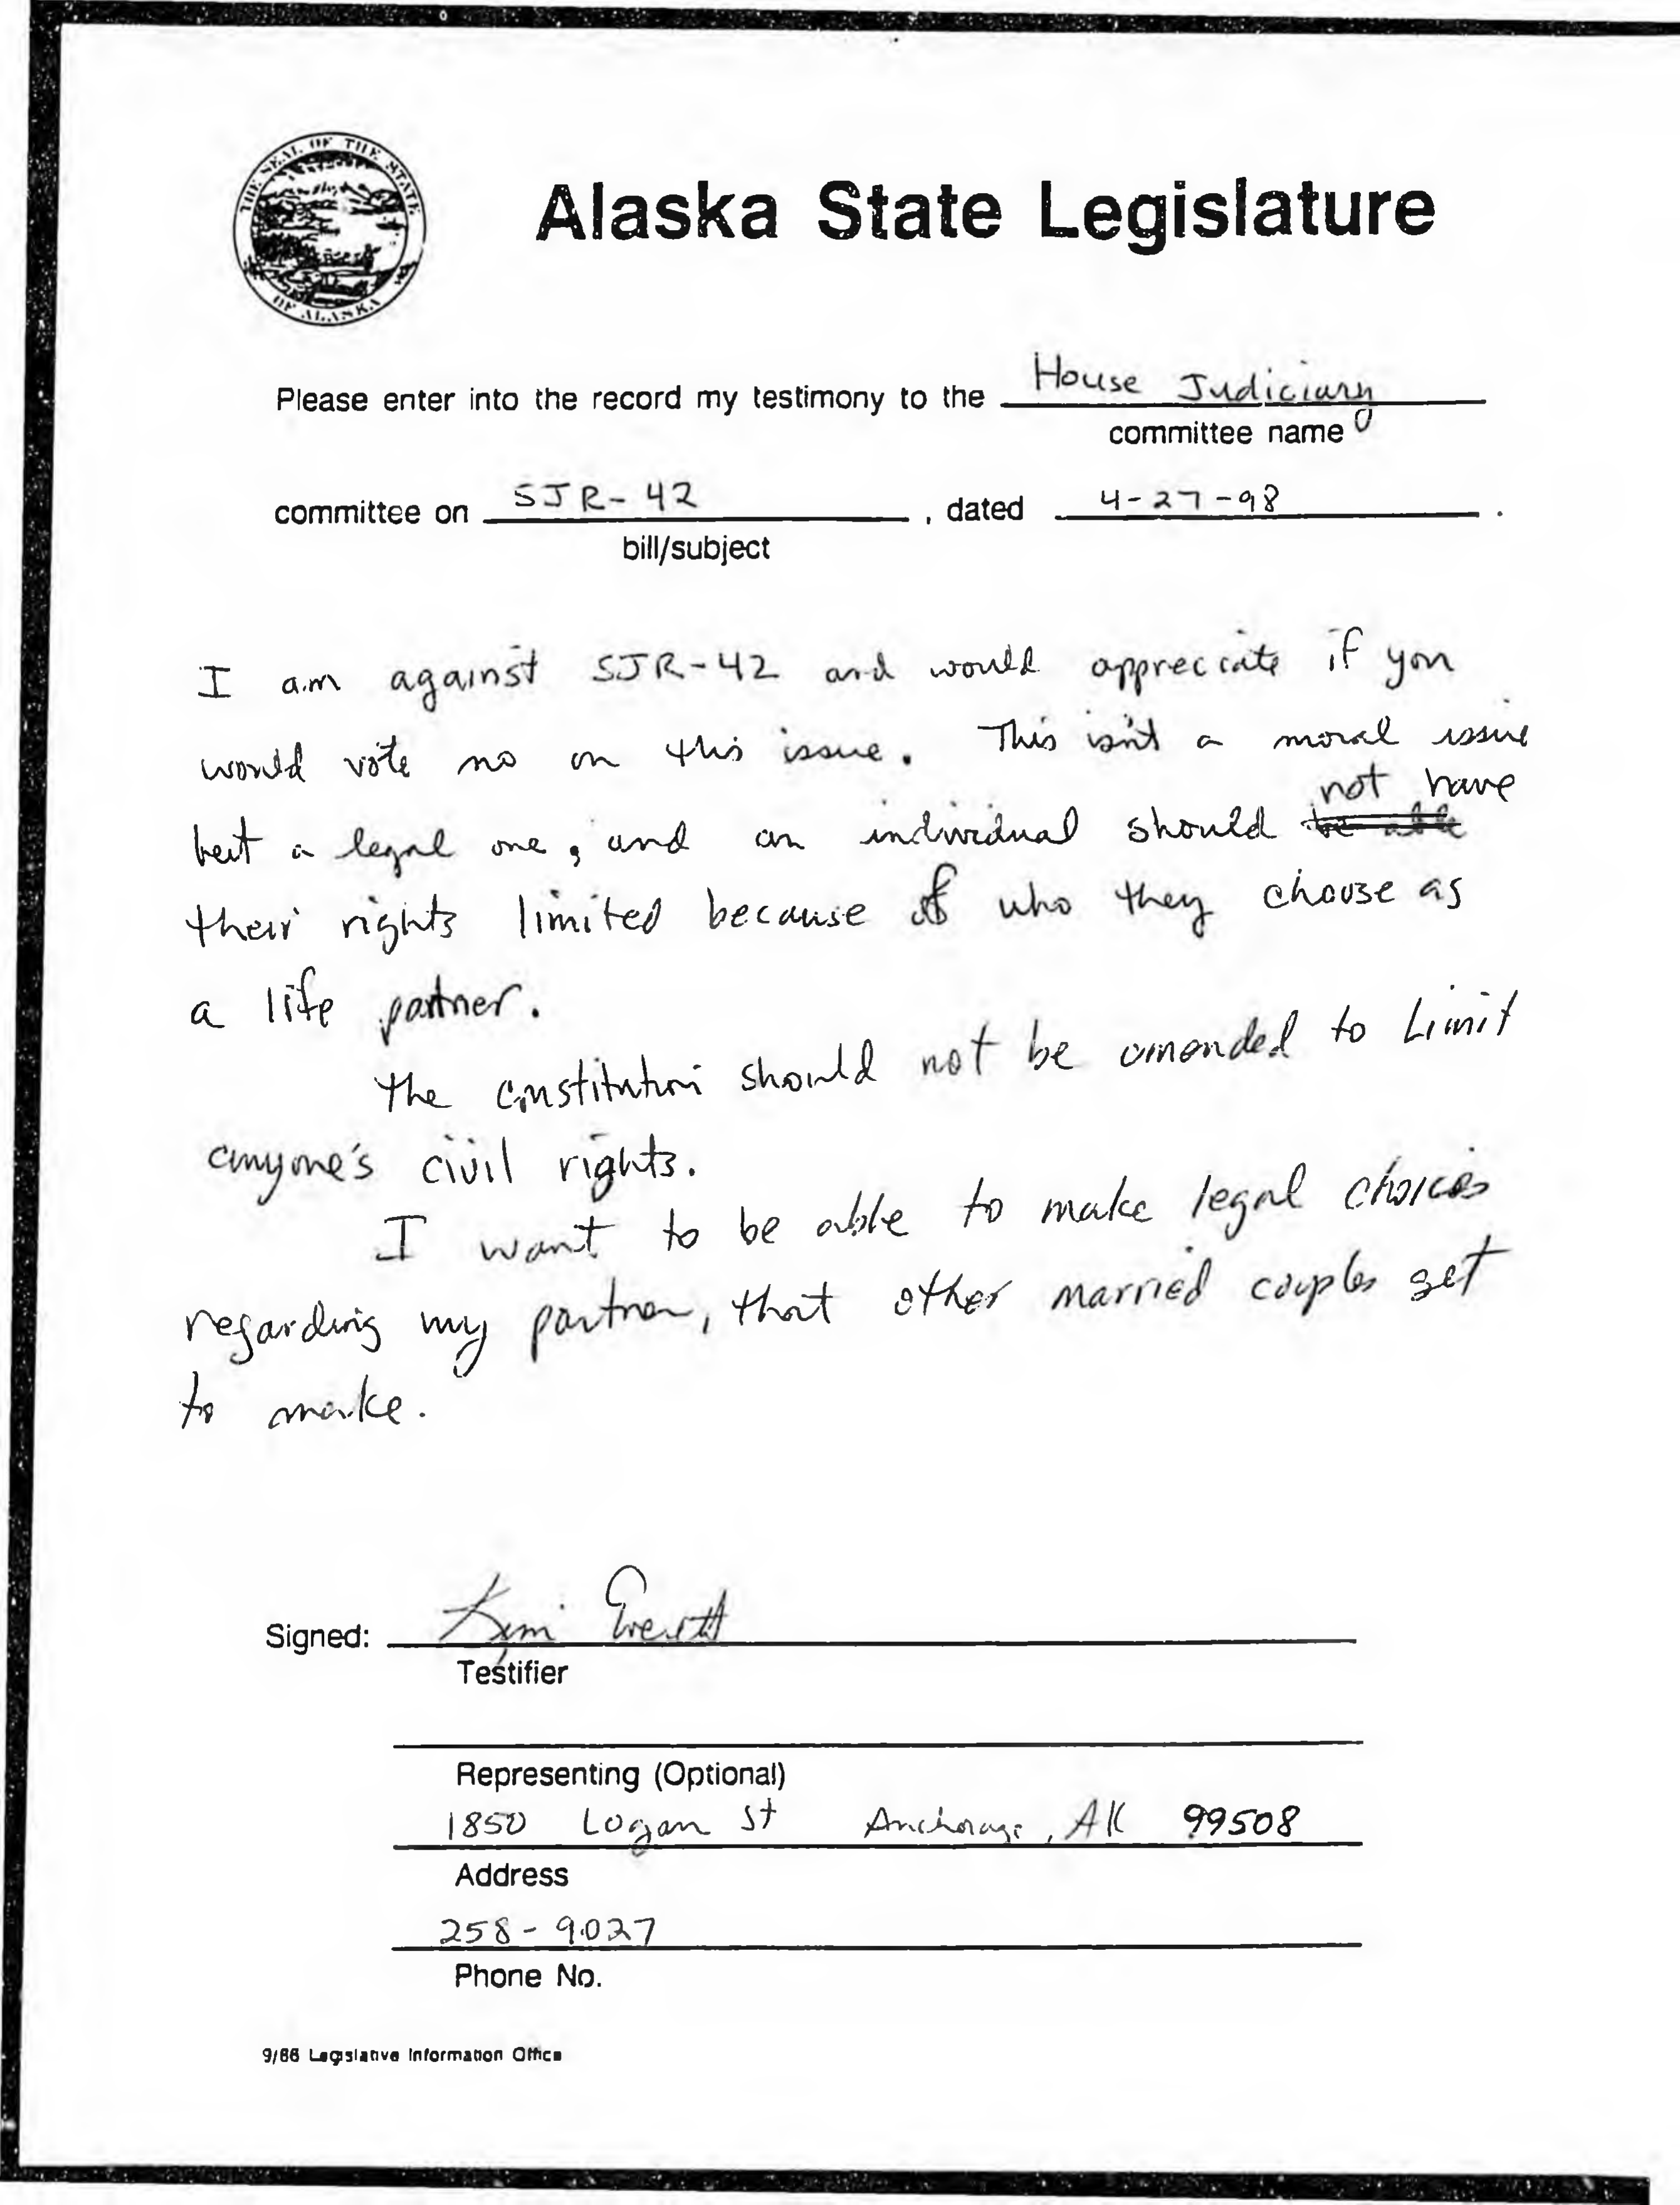 THE SEAL OF THE STATE
OF ALASKA
Alaska State Legislature
Please enter into the record my testimony to the House Judiciary
committee name
committee on SJR-42, dated 4-27-98.
bill/subject
I am against SJR-42 and would appreciate if you
would vote no on this issue. This isn't a moral issue
not have
but a legal one, and an individual should be able
their rights limited because of who they choose as
a life partner.
The constitution should not be amended to limit
anyone's civil rights.
I want to be able to make legal choices
regarding my partner, that other married couples get
to make.
Signed: Kim
Testifier
Representing (Optional)
1850 Logan St Anchorage, AK 99508
Address
258-9027
Phone No.
9/86 Legislative Information Office